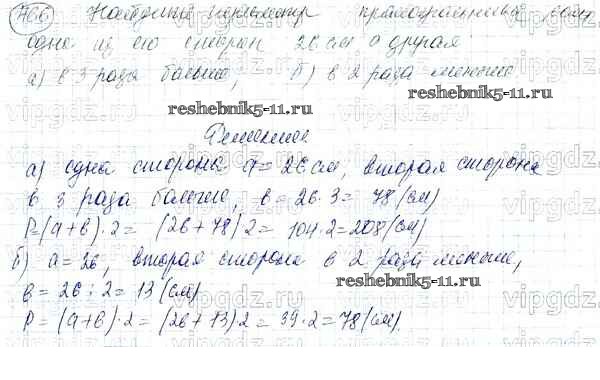 766) Найдите периметр прямоугольника, если
одна из его сторон 26 см а другая
а) в 3 раза больше; б) в 2 раза меньше.
reshebnik5-11.ru
Решение
а) одна сторона a = 26 см, вторая сторона
в 3 раза больше, в = 26 · 3 = 78 (см)
P = (a + в) · 2 = (26 + 78) 2 = 104 · 2 = 208 (см)
б) a = 26, вторая сторона в 2 раза меньше,
reshebnik5-11.ru
в = 26 : 2 = 13 (см)
P = (a + в) · 2 = (26 + 13) · 2 = 39 · 2 = 78 (см)
vipgdz.ru